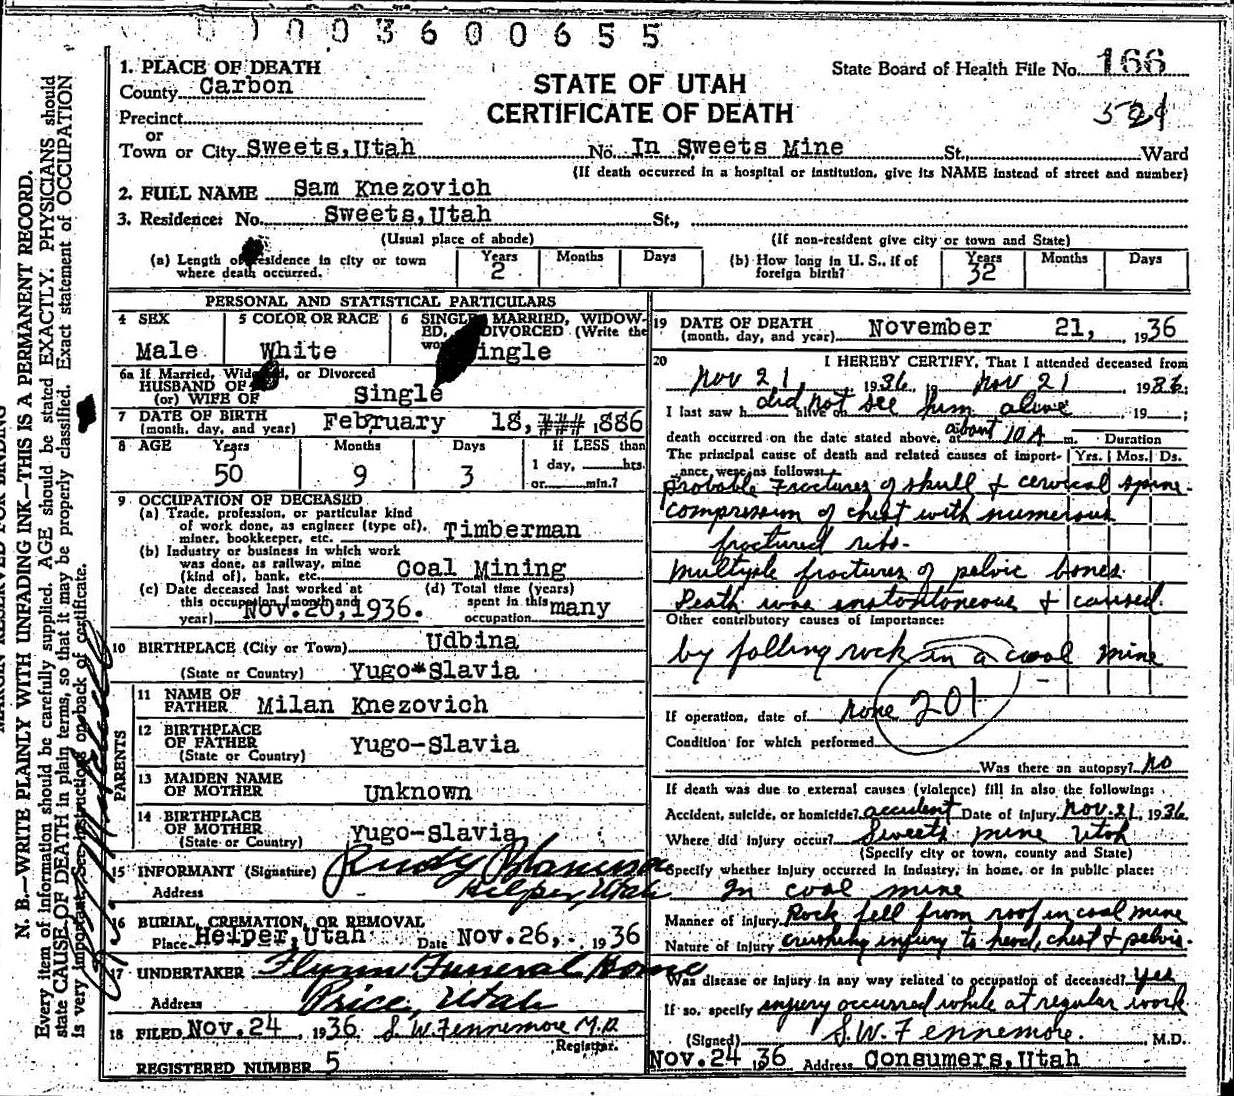 0 1 0 0 3 6 0 0 6 5 5
1. PLACE OF DEATH
County Carbon
STATE OF UTAH
CERTIFICATE OF DEATH
State Board of Health File No. 166
521
Precinct
or
Town or City Sweets,Utah No. In Sweets Mine St., Ward
(If death occurred in a hospital or institution, give its NAME instead of street and number)
2. FULL NAME Sam Knezovich
3. Residence: No. Sweets,Utah St.,
(Usual place of abode) (If non-resident give city or town and State)
(a) Length of residence in city or town where death occurred. Years 2 Months Days
(b) How long in U. S., if of foreign birth? Years 32 Months Days
PERSONAL AND STATISTICAL PARTICULARS
4 SEX Male
5 COLOR OR RACE White
6 SINGLE MARRIED, WIDOW-
ED, DIVORCED (Write the
ingle
6a If Married, Widowed, or Divorced
HUSBAND OF
(or) WIFE OF Single
7 DATE OF BIRTH
(month, day, and year) February 18, ### 1886
8 AGE Years 50 Months 9 Days 3 If LESS than
1 day, hrs.
or min.?
9 OCCUPATION OF DECEASED
(a) Trade, profession, or particular kind
of work done, as engineer (type of),
miner, bookkeeper, etc. Timberman
(b) Industry or business in which work
was done, as railway, mine
(kind of), bank, etc. Coal Mining
(c) Date deceased last worked at
this occupation (month and
year) Nov.20,1936.
(d) Total time (years)
spent in this
occupation many
10 BIRTHPLACE (City or Town) Udbina
(State or Country) Yugo*Slavia
PARENTS
11 NAME OF
FATHER Milan Knezovich
12 BIRTHPLACE
OF FATHER
(State or Country) Yugo-Slavia
13 MAIDEN NAME
OF MOTHER Unknown
14 BIRTHPLACE
OF MOTHER
(State or Country) Yugo-Slavia
15 INFORMANT (Signature) Rudy
Address Helper, Utah
16 BURIAL, CREMATION, OR REMOVAL
Place Helper,Utah Date Nov.26, 1936
17 UNDERTAKER Flynn Funeral Home
Address Price, Utah
18 FILED Nov.24, 1936 S. W. Fennemore M.D.
Registrar.
REGISTERED NUMBER 5
19 DATE OF DEATH
(month, day, and year) November 21, 1936
20 I HEREBY CERTIFY, That I attended deceased from
Nov 21, 1936, to Nov 21 1936;
I last saw h did not see him alive alive on 19 ;
death occurred on the date stated above, at about 10 A m. Duration
The principal cause of death and related causes of import-
ance were as follows: Yrs. Mos. Ds.
Probable Fractures of skull & cervical spine.
compression of chest with numerous
fractured ribs.
Multiple fractures of pelvic bones.
Death was instantaneous & caused
Other contributory causes of importance:
by falling rock in a coal mine
201
If operation, date of none
Condition for which performed
Was there an autopsy? no
If death was due to external causes (violence) fill in also the following:
Accident, suicide, or homicide? accident Date of injury Nov. 21, 1936
Where did injury occur? Sweets mine Utah
(Specify city or town, county and State)
Specify whether injury occurred in Industry, in home, or in public place:
In coal mine
Manner of injury Rock fell from roof in coal mine
Nature of injury crushing injury to head, chest & pelvis.
Was disease or injury in any way related to occupation of deceased? yes
If so, specify injury occurred while at regular work
(Signed) S. W. Fennemore. M.D.
Nov.24 ,36 Address Consumers,Utah
MARGIN RESERVED FOR BINDING
N. B.—WRITE PLAINLY WITH UNFADING INK—THIS IS A PERMANENT RECORD.
Every item of information should be carefully supplied. AGE should be stated EXACTLY. PHYSICIANS should
state CAUSE OF DEATH in plain terms, so that it may be properly classified. Exact statement of OCCUPATION
is very important. See instructions on back of certificate.